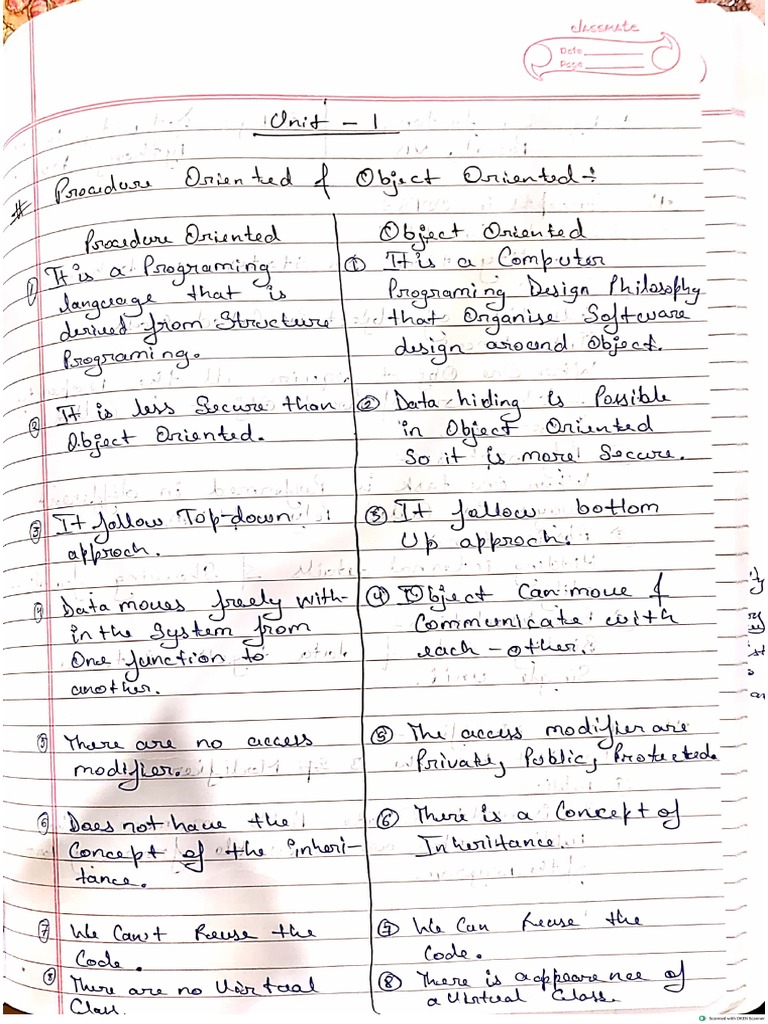 classmate
Date
Page
Unit - 1
# Procedure Oriented & Object Oriented :-
Procedure Oriented
① It is a Programing
language that is
derived from Structure
Programing.
② It is less Secure than
Object Oriented.
③ It follow Top-down
approch.
④ Data moves freely with-
in the System from
One function to
another.
⑤ There are no access
modifier.
⑥ Does not have the
Concept of the inheri-
tance.
⑦ We Can't Reuse the
Code.
⑧ There are no Virtual
Class.
Object Oriented
① It is a Computer
Programing Design Philosophy
that Organise Software
design around Object.
② Data hiding is Possible
in Object Oriented
So it is more Secure.
③ It follow bottom
Up approch.
④ Object Can move &
Communicate with
each-other.
⑤ The access modifier are
Private, Public, Protected.
⑥ There is a Concept of
Inheritance.
⑦ We Can Reuse the
Code.
⑧ There is appearance of
a Virtual Class.
Scanned with OKEN Scanner